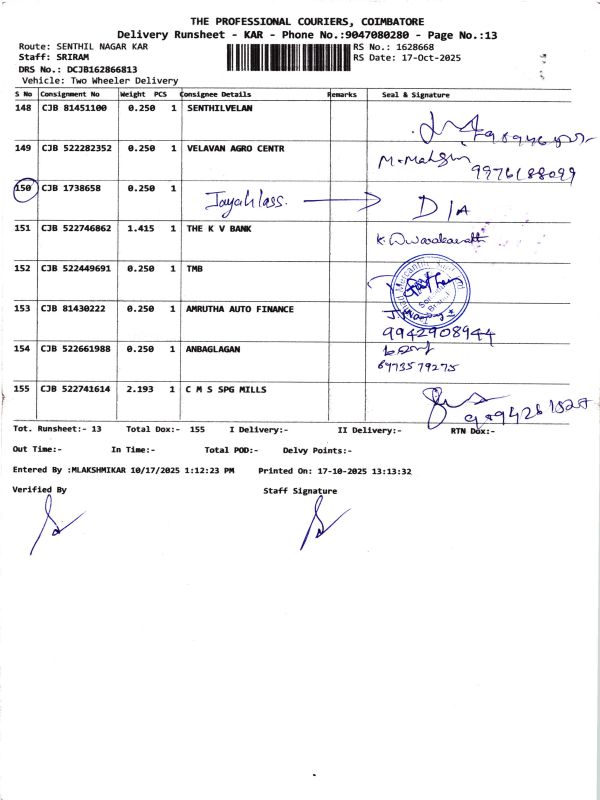 THE PROFESSIONAL COURIERS, COIMBATORE
Delivery Runsheet - KAR - Phone No.:9047080280 - Page No.:13
Route: SENTHIL NAGAR KAR
RS No.: 1628668
Staff: SRIRAM
RS Date: 17-Oct-2025
DRS No.: DCJB162866813
Vehicle: Two Wheeler Delivery
S No Consignment No Weight PCS Consignee Details Remarks Seal & Signature
148 CJB 81451100 0.250 1 SENTHILVELAN
149 CJB 522282352 0.250 1 VELAVAN AGRO CENTR
9976188099
150 CJB 1738658 0.250 1 D/A
151 CJB 522746862 1.415 1 THE K V BANK
152 CJB 522449691 0.250 1 TMB
153 CJB 81430222 0.250 1 AMRUTHA AUTO FINANCE
9942908944
154 CJB 522661988 0.250 1 ANBAGLAGAN
155 CJB 522741614 2.193 1 C M S SPG MILLS
Tot. Runsheet:- 13 Total Dox:- 155 I Delivery:- II Delivery:- RTN Dox:-
Out Time:- In Time:- Total POD:- Delvy Points:-
Entered By :MLAKSHMIKAR 10/17/2025 1:12:23 PM Printed On: 17-10-2025 13:13:32
Verified By Staff Signature